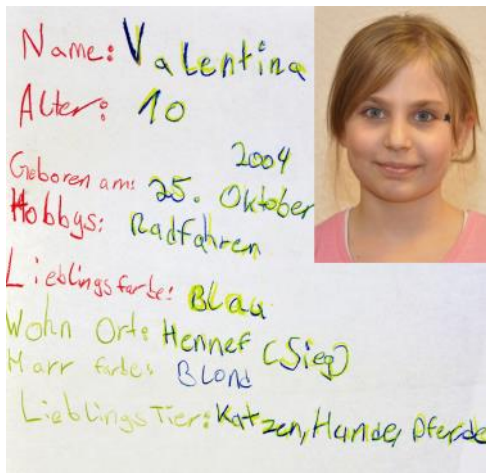 Name: Valentina
Alter: 10
2004
Geboren am: 25. Oktober
Hobbys: Radfahren
Lieblingsfarbe: Blau
Wohn Ort: Hennef (Sieg)
Harr farbe: Blond
Lieblings Tier: Katzen, Hunde, Pferde